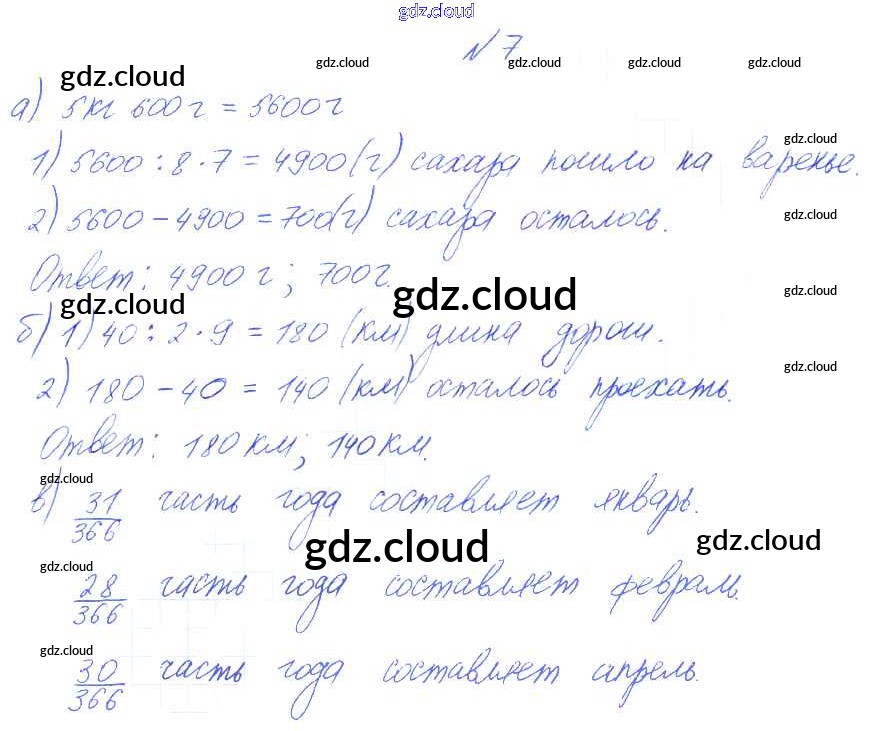 gdz.cloud
№ 7
gdz.cloud gdz.cloud gdz.cloud gdz.cloud
gdz.cloud
а) 5кг 600г = 5600г
gdz.cloud
1) 5600 : 8 · 7 = 4900 (г) сахара пошло на варенье.
gdz.cloud
2) 5600 - 4900 = 700(г) сахара осталось.
Ответ: 4900 г; 700г.
gdz.cloud
gdz.cloud gdz.cloud
б) 1) 40 : 2 · 9 = 180 (км) длина дороги.
gdz.cloud
2) 180 - 40 = 140 (км) осталось проехать.
Ответ: 180 км; 140 км.
gdz.cloud
в) 31/366 часть года составляет январь.
gdz.cloud gdz.cloud
gdz.cloud
28/366 часть года составляет февраль.
gdz.cloud
30/366 часть года составляет апрель.